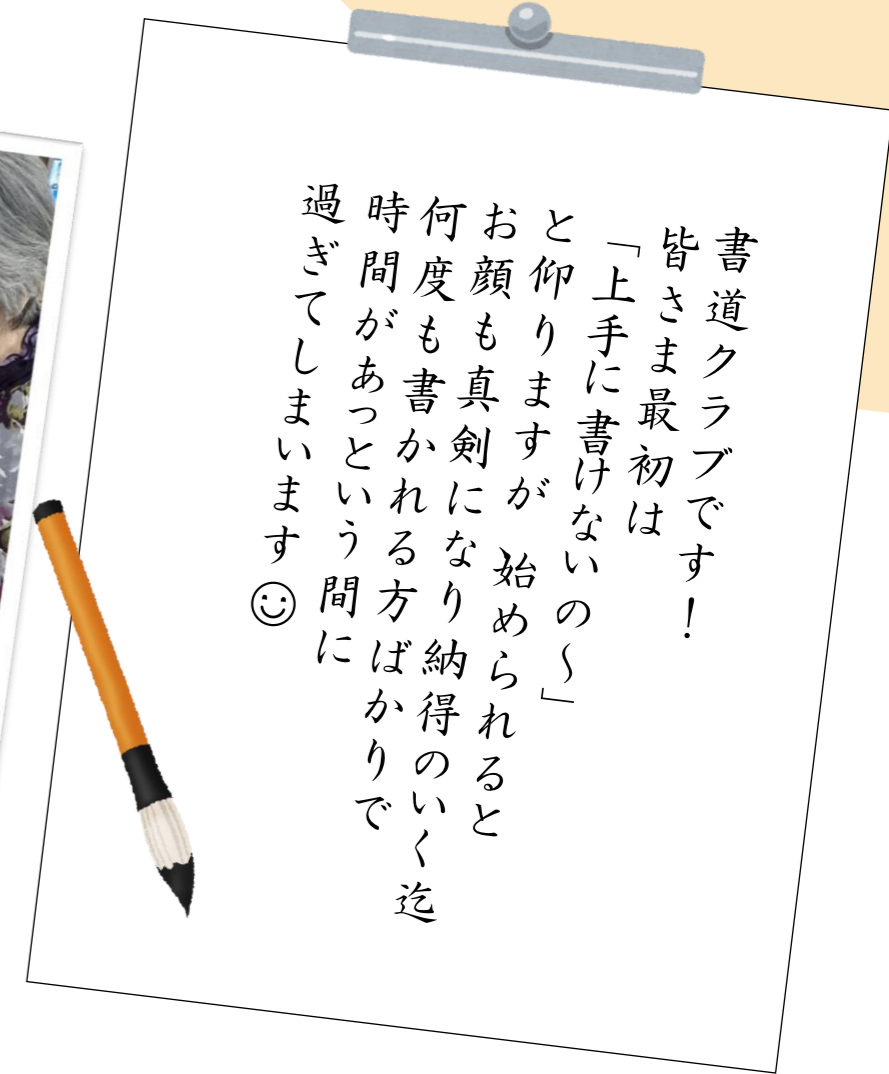 書道クラブです！
皆さま最初は
「上手に書けないの～」
と仰りますが　始められると
お顔も真剣になり納得のいく迄
何度も書かれる方ばかりで
時間があっという間に
過ぎてしまいます☺